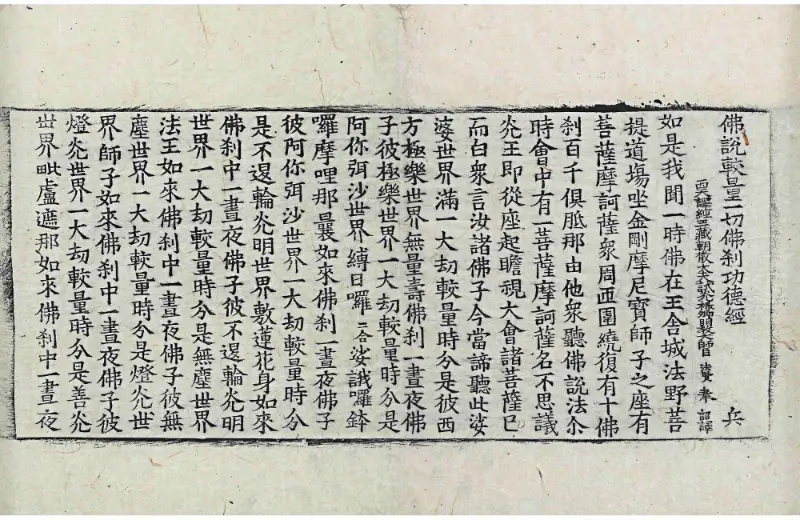 佛說較量一切佛刹功德經 兵
西天譯經三藏朝散大夫試光祿卿 奉 詔譯
如是我聞一時佛在王舍城法野菩
提道場坐金剛摩尼寶師子之座有
菩薩摩訶薩眾周帀圍繞復有十佛
刹百千俱胝那由他眾聽佛說法尒
時會中有一菩薩摩訶薩名不思議
光王即從座起瞻視大會諸菩薩已
而白眾言汝諸佛子今當諦聽此娑
婆世界滿一大劫較量時分是彼西
方極樂世界無量壽佛刹一晝夜佛
子彼極樂世界一大劫較量時分是
阿你弭沙世界縛日囉二合娑誐囉鉢
囉摩哩那曩如來佛刹一晝夜佛子
彼阿你弭沙世界一大劫較量時分
是不退輪光明世界數蓮花身如來
佛刹中一晝夜佛子彼不退輪光明
世界一大劫較量時分是無塵世界
法王如來佛刹中一晝夜佛子彼無
塵世界一大劫較量時分是燈光世
界師子如來佛刹中一晝夜佛子彼
燈光世界一大劫較量時分是善光
世界毗盧遮那如來佛刹中一晝夜